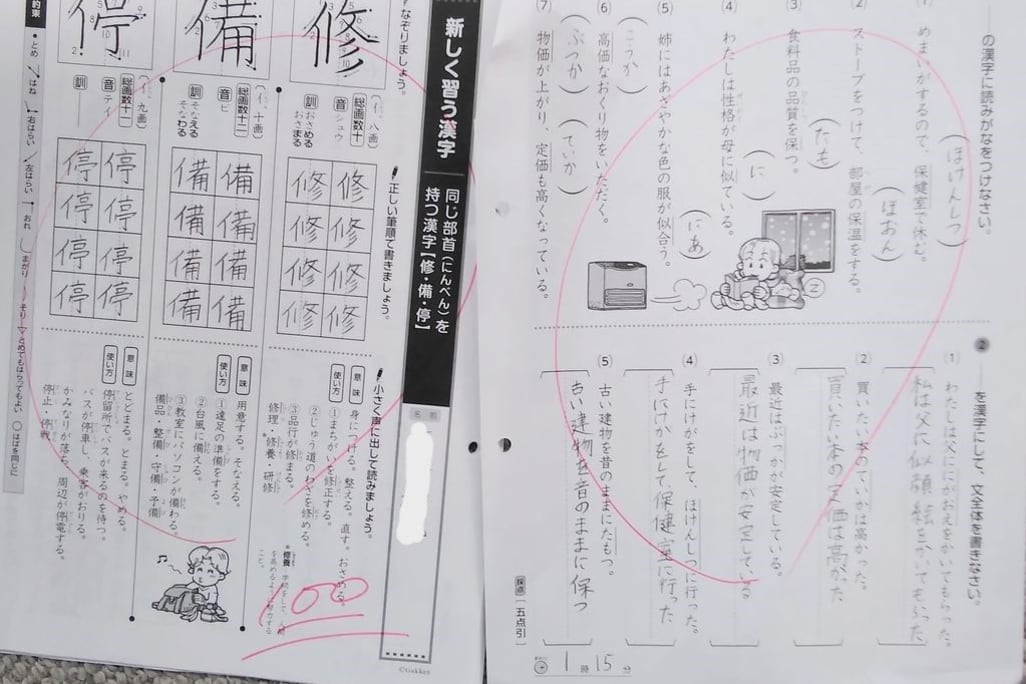 の漢字に読みがなをつけなさい。
① めまいがするので、保健室で休む。
（ほけんしつ）
② ストーブをつけて、部屋の保温をする。
（ほおん）
③ 食料品の品質を保つ。
（たも）
④ わたしは性格が母に似ている。
（に）
⑤ 姉にはあざやかな色の服が似合う。
（にあ）
⑥ 高価なおくり物をいただく。
（こうか）
⑦ 物価が上がり、定価も高くなっている。
（ぶっか）（ていか）
②
を漢字にして、文全体を書きなさい。
① わたしは父ににがおえをかいてもらった。
私は父に似顔絵をかいてもらった
② 買いたい本のていかは高かった。
買いたい本の定価は高かった
③ 最近はぶっかが安定している。
最近は物価が安定している
④ 手にけがをして、ほけんしつに行った。
手にけがをして保健室に行った
⑤ 古い建物を昔のままにたもつ。
古い建物を昔のままに保つ
採点 五点引
1時15分
新しく習う漢字
同じ部首（にんべん）を
持つ漢字【修・備・停】
名前
©Gakken
なぞりましょう。
正しい筆順で書きましょう。
小さく声に出して読みましょう。
修
（イ、八画）
総画数十
音 シュウ
訓 おさめる
おさまる
修 修
修 修
修 修
修 修
意味 身につける。整える。直す。おさめる。
使い方 ①まちがいを修正する。
②じゅう道のわざを修める。
③品行が修まる。
修理・修養・研修
*修養
100
備
（イ、十画）
総画数十二
音 ビ
訓 そなえる
そなわる
備 備
備 備
備 備
備 備
意味 用意する。そなえる。
使い方 ①遠足の準備をする。
②台風に備える。
③教室にパソコンが備わる。
備品・整備・守備・予備
停
（イ、九画）
総画数十一
音 テイ
訓
停 停
停 停
停 停
停 停
意味 とどまる。とまる。やめる。
使い方 停留所でバスが来るのを待つ。
バスが停車し、乗客がおりる。
かみなりが落ち、周辺が停電する。
停止・停戦
約束 ●とめ はね 右はらい 左はらい おれ まがり そり とめてもはらってもよい ○はばを同じに